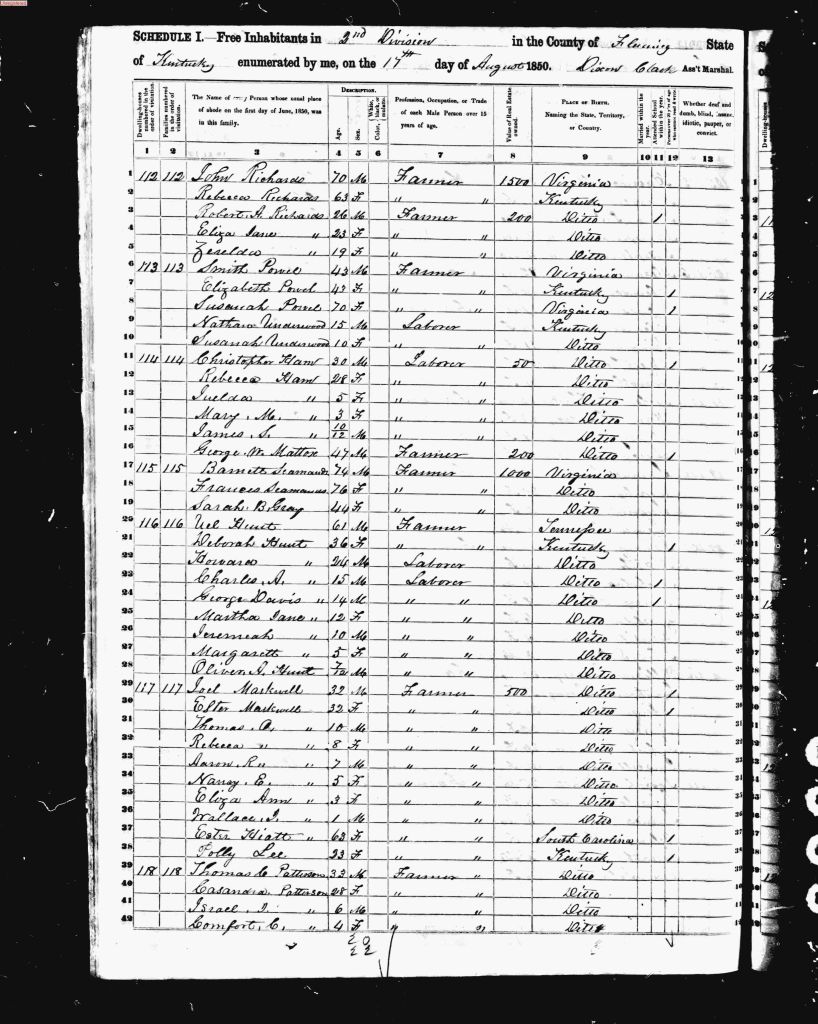 SCHEDULE I.—Free Inhabitants in 2nd Division in the County of Fleming State
of Kentucky enumerated by me, on the 17th day of August 1850. Dixon Clack Ass't Marshal.
Dwelling-houses numbered in the order of visitation.
Families numbered in the order of visitation.
The Name of every Person whose usual place of abode on the first day of June, 1850, was in this family.
DESCRIPTION.
Age.
Sex.
White, black, or mulatto.
Color,
Profession, Occupation, or Trade of each Male Person over 15 years of age.
Value of Real Estate owned.
PLACE OF BIRTH.
Naming the State, Territory, or Country.
Married within the year.
Attended School within the year.
Whether deaf and dumb, blind, insane, idiotic, pauper, or convict.
1 2 3 4 5 6 7 8 9 10 11 12 13
1 112 112 John Richards 70 M Farmer 1500 Virginia
2 Rebecca Richards 63 F " " Kentucky
3 Robert A. Richards 26 M Farmer 200 Ditto 1
4 Eliza Jane " 23 F " " Ditto
5 Zerelda " 19 F " " Ditto
6 113 113 Smith Powel 43 M Farmer Virginia
7 Elizabeth Powel 42 F " " Kentucky 1
8 Susanah Powel 70 F " " Virginia 1
9 Nathan Underwood 15 M Laborer Kentucky
10 Susanah Underwood 10 F " " Ditto
11 114 114 Christopher Ham 30 M Laborer 50 Ditto 1
12 Rebecca Ham 28 F " " Ditto
13 " 5 F " " Ditto
14 Mary M. " 3 F " " Ditto
15 James S. " 10/12 M " " Ditto
16 George W. Mattox 47 M Farmer 200 Ditto 1
17 115 115 Barnett 74 M Farmer 1000 Virginia
18 Frances 76 F " " Ditto
19 Sarah B. Gray 44 F " " Ditto
20 116 116 Uel Hunt 61 M Farmer Tennessee
21 Deborah Hunt 36 F " " Kentucky 1
22 Howard " 24 M Laborer Ditto
23 Charles A. " 15 M Laborer Ditto 1
24 George Davis " 14 M " " Ditto 1
25 Martha Jane " 12 F " " Ditto
26 Jeremiah " 10 M " " Ditto
27 Margarett " 5 F " " Ditto
28 Oliver A. Hunt M " " Ditto
29 117 117 Joel Markwell 32 M Farmer 500 Ditto 1
30 Ester Markwell 32 F " " Ditto 1
31 Thomas " 10 M " " Ditto
32 Rebecca " " 8 F " " Ditto
33 Aaron R. " 7 M " " Ditto
34 Nancy E. " 5 F " " Ditto
35 Eliza Ann " 3 F " " Ditto
36 Wallace " 1 M " " Ditto
37 Ester Hiatt " 63 F " " South Carolina 1
38 Polly Lee 23 F " " Kentucky 1
39 118 118 Thomas C. Patterson 33 M Farmer " Ditto
40 Casandra Patterson 28 F " " Ditto
41 Israel J. " 6 M " " Ditto
42 Comfort C. " 4 F " " Ditto